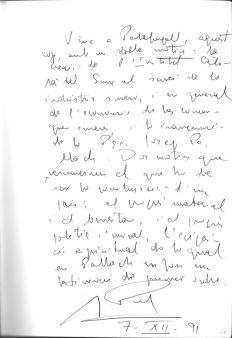 Vinc a Palafrugell, aquest
cop, amb un doble motiu: la
de l'Institut Cata-
là del Suro al servei de la
indústria surera, i en general
de l'economia de les comar-
ques sureres, i la inauguració
de la Pça. Josep Pa-
llach. Dos motius que
resumeixen el que ha de
ser la construcció d'un
país: el progrés material
i el benestar, i el progrés
polític i moral, l'exigèn-
cia espiritual de la qual
en Pallach
testimoni de primer ordre.
7. XII. 91